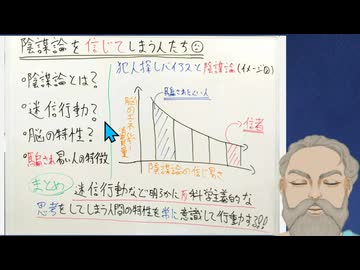 陰謀論を信じてしまう人たち
・陰謀論とは?
・迷信行動?
・脳の特性?
・騙され易い人の特徴
犯人探しバイアスと陰謀論(イメージ図)
脳のエネ
騙されにくい人
信者
陰謀論の信じ易さ
まとめ
迷信行動など明らかに反科学主義的な
思考をしてしまう人間の特性を常に意識して行動する!!